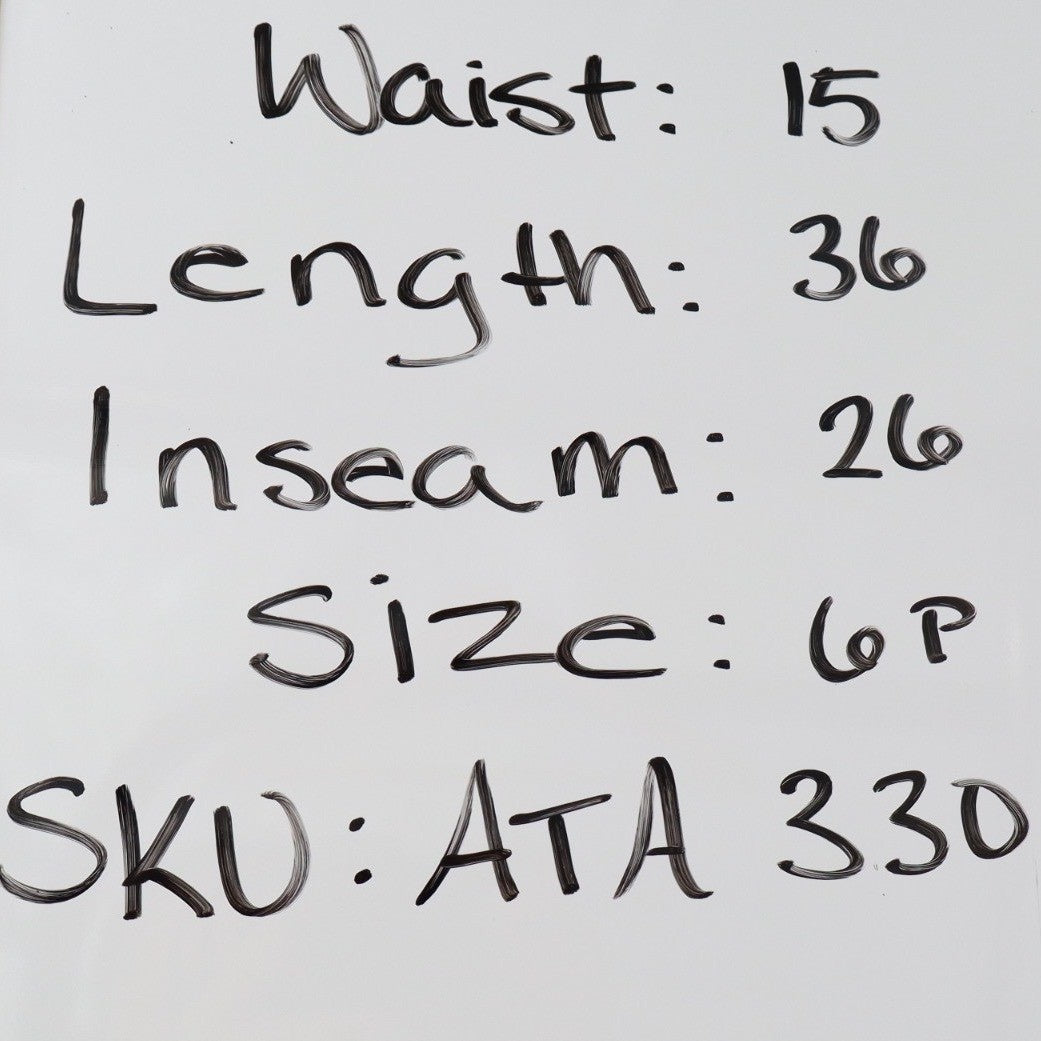 Waist: 15
Length: 36
Inseam: 26
Size: 6P
SKU: ATA 330